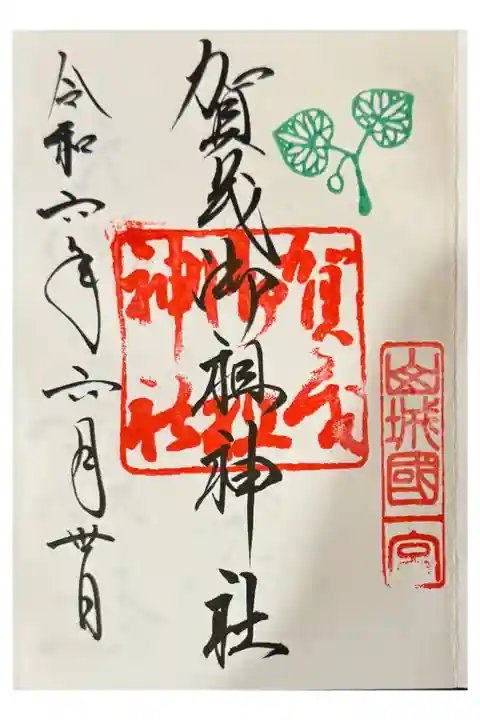 山城國一宮
賀茂御祖神社
賀茂
御祖
神社
令和六年六月丗日